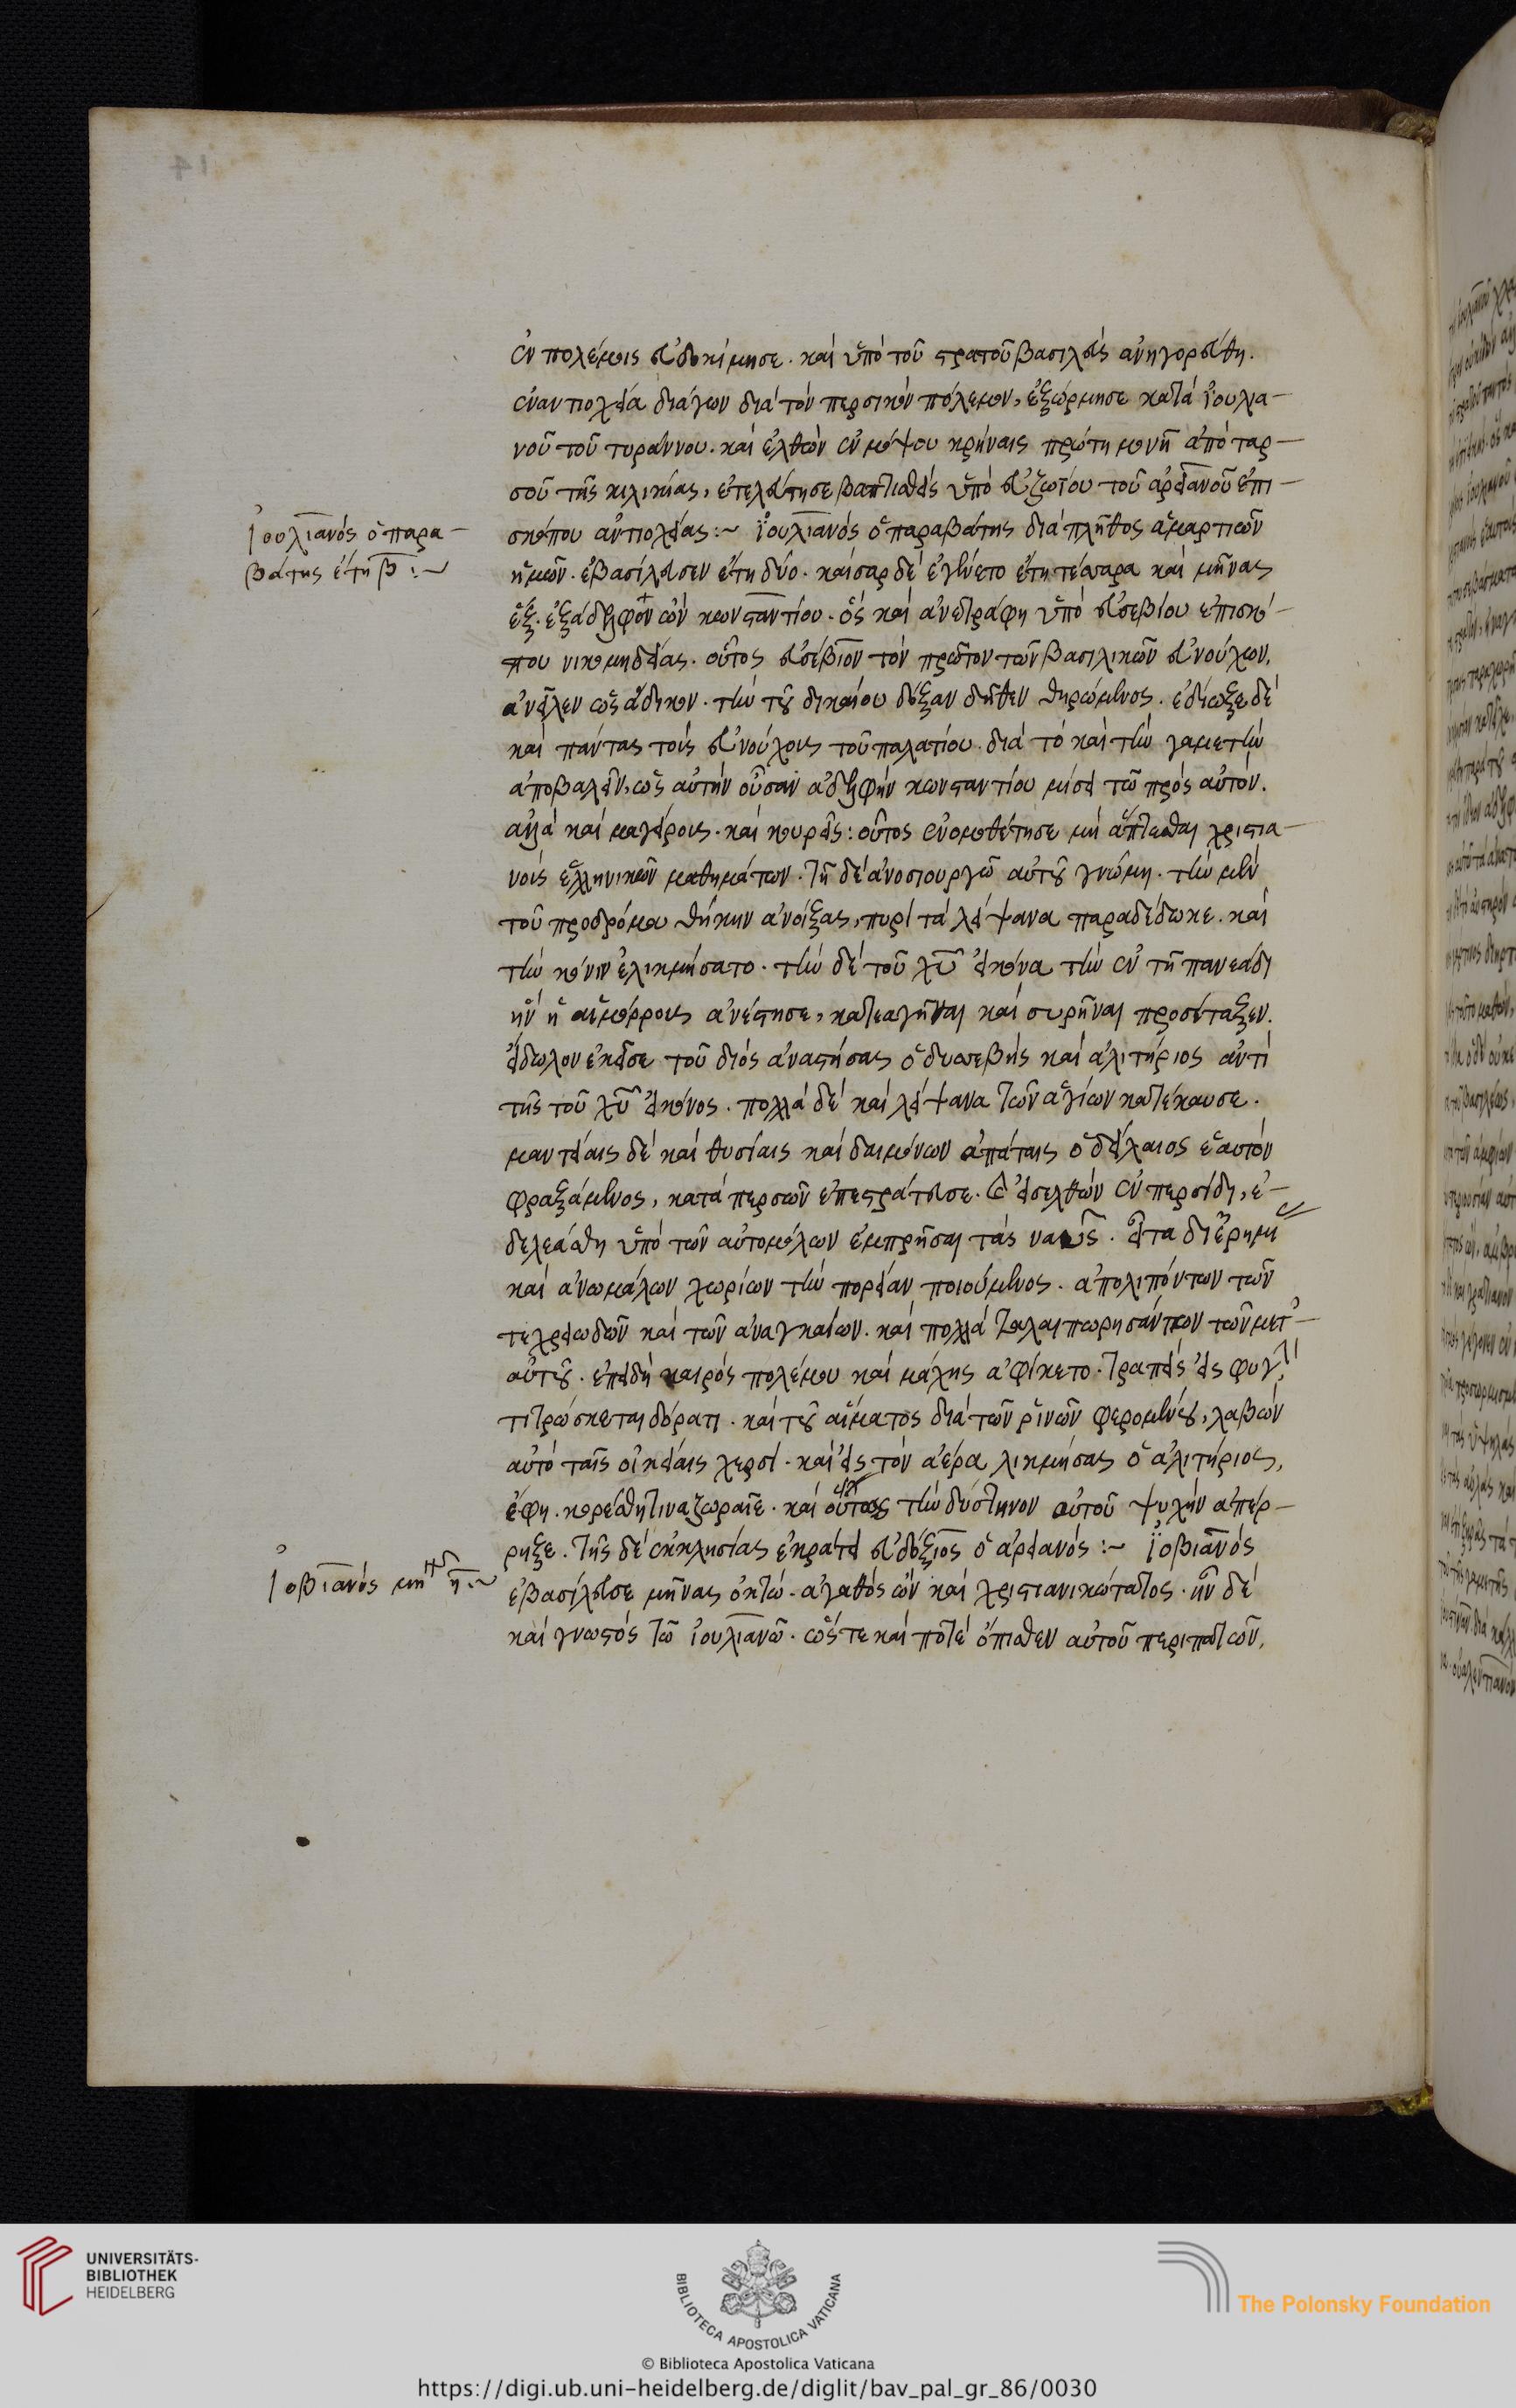 ἐν πολέμοις εὐδοκίμησε. καὶ ὑπὸ τοῦ στρατοῦ βασιλεὺς ἀνηγορεύθη.
ἐν ἀντιοχεία διάγων διὰ τὸν περσικὸν πόλεμον, ἐξώρμησε κατὰ ἰουλια-
νοῦ τοῦ τυράννου. καὶ ἐλθὼν ἐν μόψου κρήναις πρώτη μονῆ ἀπὸ ταρ-
σοῦ τῆς κιλικίας, ἐτελεύτησε βαπτισθεὶς ὑπὸ εὐζωΐου τοῦ ἀρειανοῦ ἐπι-
σκόπου ἀντιοχείας :~ Ἰουλιανὸς ὁ παραβάτης διὰ πλῆθος ἁμαρτιῶν
Ἰουλιανὸς ὁ παρα-
βάτης ἔτη β :~
ἡμῶν. ἐβασίλευσεν ἔτη δύο. καῖσαρ δὲ ἐγένετο ἔτη τέσσαρα καὶ μῆνας
ἕξ. ἐξάδελφον ὢν κωνσταντίου. ὃς καὶ ἀνετράφη ὑπὸ εὐσεβίου ἐπισκό-
που νικομηδείας. οὗτος εὐσέβιον τὸν πρῶτον τῶν βασιλικῶν εὐνούχων,
ἀνεῖλεν ὡς ἄδικον. τὴν τοῦ δικαίου δόξαν δῆθεν θηρώμενος. ἐδίωξε δὲ
καὶ πάντας τοὺς εὐνούχους τοῦ παλατίου. διὰ τὸ καὶ τὴν γαμετὴν
ἀποβαλεῖν, ὡς αὐτὴν οὖσαν ἀδελφὴν κωνσταντίου μίσει τῶ πρὸς αὐτόν.
ἀλλὰ καὶ μαγείρους. καὶ κουρεῖς: οὗτος ἐνομοθέτησε μὴ ἅπτεσθαι χριστια-
νοὺς ἑλληνικῶν μαθημάτων. τῆ δὲ ἀνοσιουργῶ αὐτοῦ γνώμη. τὴν μὲν
τοῦ προδρόμου θήκην ἀνοίξας, πυρὶ τὰ λείψανα παραδέδωκε. καὶ
τὴν κόνιν ἐλικμήσατο. τὴν δὲ τοῦ χυ εἰκόνα τὴν ἐν τῆ πανεάδι
ἣν ἡ αἱμόρρους ἀνέστησε, κατεαγῆναι καὶ συρῆναι προσέταξεν.
εἴδωλον ἐκεῖσε τοῦ διὸς ἀναστήσας ὁ δυσσεβὴς καὶ ἀλιτήριος ἀντὶ
τῆς τοῦ χυ εἰκόνος. πολλὰ δὲ καὶ λείψανα τῶν ἁγίων κατέκαυσε.
μαντείαις δὲ καὶ θυσίαις καὶ δαιμόνων ἀπάταις ὁ δείλαιος ἑαυτὸν
φραξάμενος, κατὰ περσῶν ἐπεστράτευσε. καὶ εἰσελθὼν ἐν περσίδι, ἐ-
δελεάσθη ὑπὸ τῶν αὐτομόλων ἐμπρῆσαι τὰς ναῦς. εἶτα δι ἐρήμων
καὶ ἀνωμάλων χωρίων τὴν πορείαν ποιούμενος. ἀπολιπόντων τῶν
τε χρειωδῶν καὶ τῶν ἀναγκαίων. καὶ πολλὰ ταλαιπωρησάντων τῶν μετ'
αὐτοῦ. ἐπειδὴ καιρὸς πολέμου καὶ μάχης ἀφίκετο. τραπεὶς εἰς φυγὴν,
τιτρώσκεται δόρατι. καὶ τοῦ αἵματος διὰ τῶν ῥινῶν φερομένου, λαβὼν
αὐτὸ ταῖς οἰκείαις χερσὶ. καὶ εἰς τὸν ἀέρα λικμήσας ὁ ἀλιτήριος,
ἔφη. κορέσθητι ναζωραῖε. καὶ οὕτως τὴν δύστηνον αὐτοῦ ψυχὴν ἀπέρ-
ρηξε. τῆς δὲ ἐκκλησίας ἐκράτει εὐδόξιος ὁ ἀρειανός :~ Ἰοβιανὸς
Ἰοβιανὸς μῆν η :~
ἐβασίλευσε μῆνας ὀκτώ. ἀγαθὸς ὢν καὶ χριστιανικώτατος. ἦν δὲ
καὶ γνωστὸς τῶ ἰουλιανῶ. ὥστε καὶ ποτὲ ὄπισθεν αὐτοῦ περιπατῶν,
UNIVERSITÄTS-
BIBLIOTHEK
HEIDELBERG
BIBLIOTECA APOSTOLICA VATICANA
The Polonsky Foundation
© Biblioteca Apostolica Vaticana
https://digi.ub.uni-heidelberg.de/diglit/bav_pal_gr_86/0030